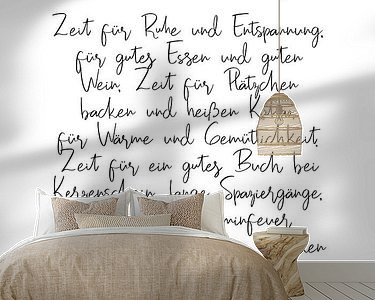 Zeit für Ruhe und Entspannung,
für gutes Essen und guten
Wein. Zeit für Plätzchen
backen und heißen
für Wärme und Gemütlichkeit.
Zeit für ein gutes Buch bei
Kerzenschein, lange Spaziergänge,